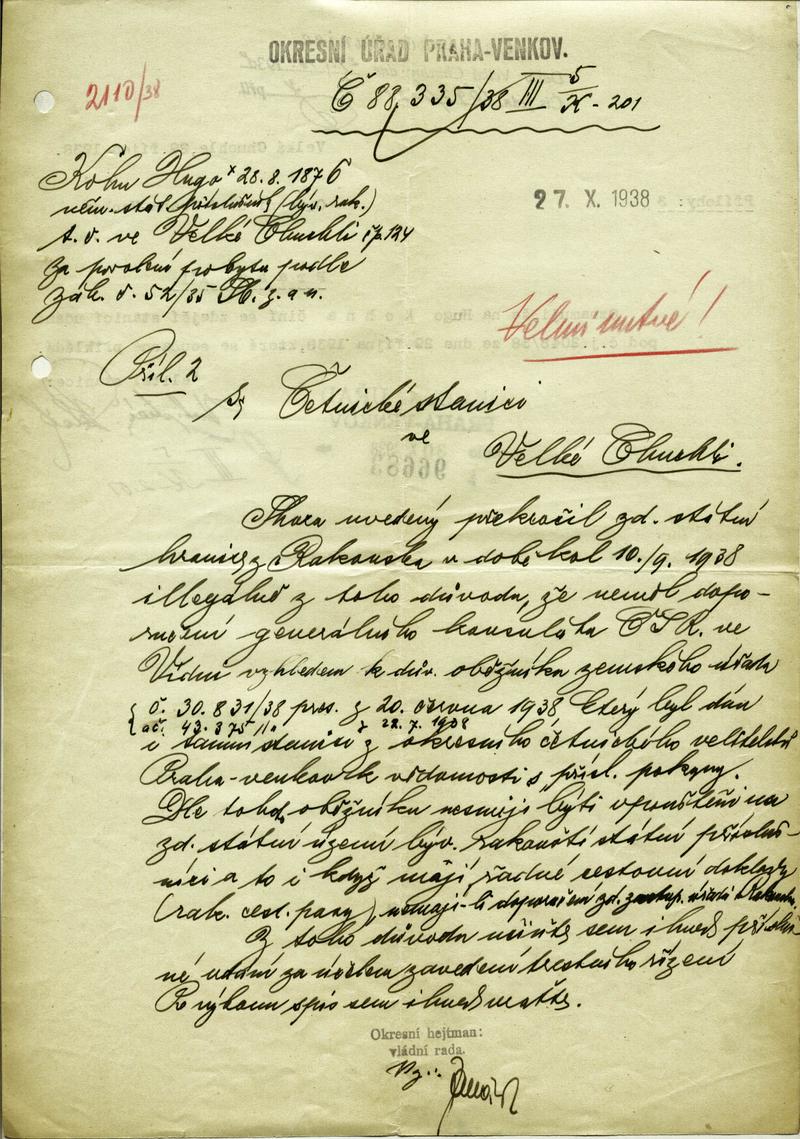 OKRESNÍ ÚŘAD PRAHA-VENKOV.
2110/38
Č 88.335/38 III 5/X - 201
Kohn Hugo * 28. 8. 1876
něm. stát. příslušník (býv. rak.)
t. č. ve Velké Chuchli čp. 124
za povolení pobytu podle
zák. č. 52/35 Sb. z. a n.
27. X. 1938
Přílohy: 3
Velmi nutné!
Příl. 2
Četnické stanici
ve
Velké Chuchli.
Shora uvedený překročil zd. státní
hranice z Rakouska v době kol 10./9. 1938
illegálně z toho důvodu, že neměl dopo-
ručení generálního konsulátu ČSR. ve
Vídni vzhledem k dův. oběžníku zemského úřadu
č. 30.831/38 pres. z 20. června 1938 který byl dán
ač. 43.875 z 22. 7. 1938
i tamní stanici z okresního četnického velitelství
Praha-venkov k vědomosti s přísl. pokyny.
Dle tohoto oběžníku nesmějí býti vpouštěni na
zd. státní území býv. rakouští státní přísluš-
níci a to i když mají řádné cestovní doklady
(rak. cest. pasy), nemají-li doporučení zd. zastup. úřadů v Rakousku.
Z toho důvodu učiňte sem ihned přísluš-
né udání za účelem zavedení trestního řízení
R výkonu spis sem ihned vraťte.
Okresní hejtman:
vládní rada.
Vz.: